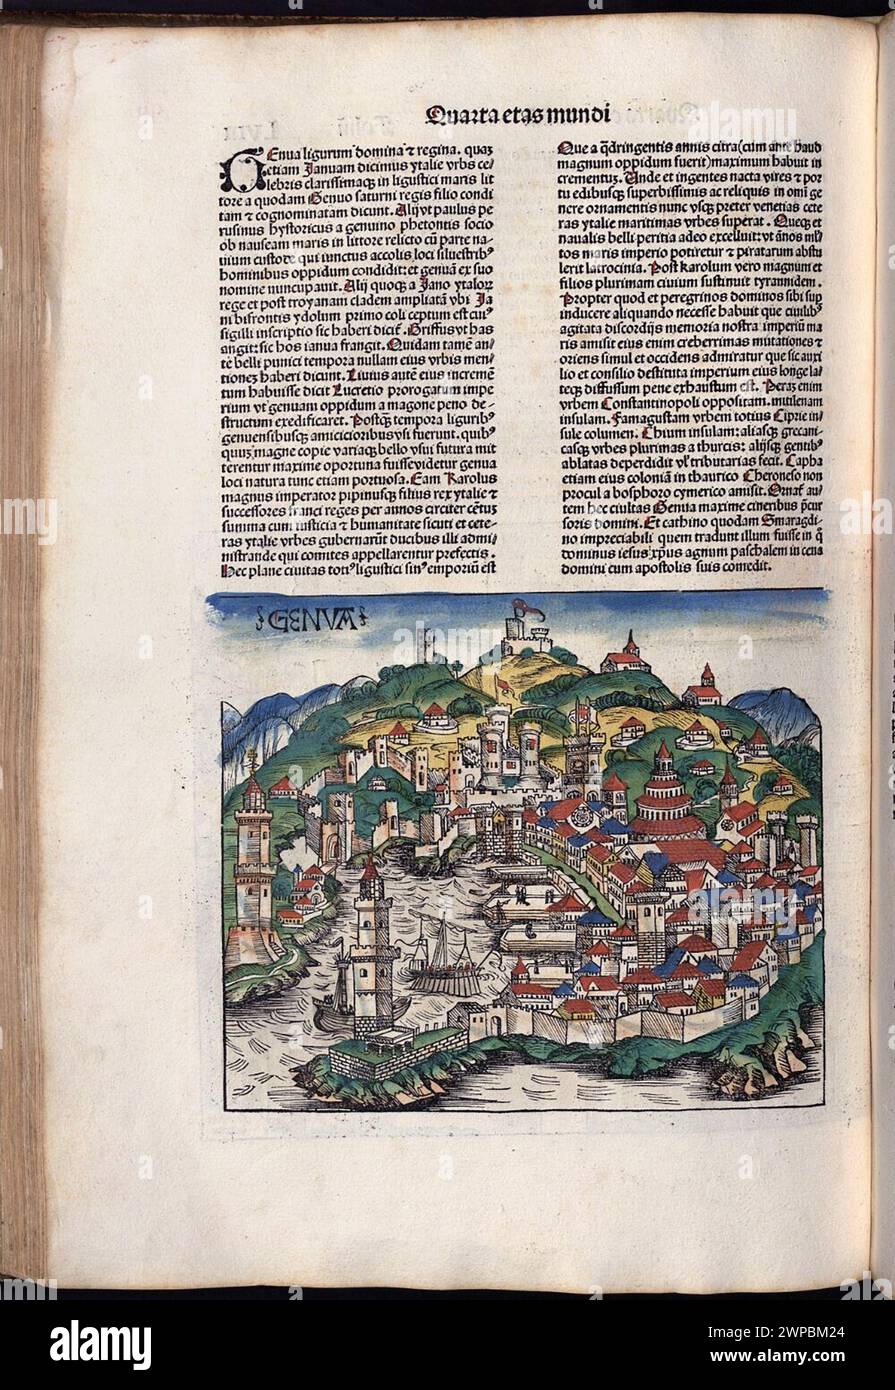 Quarta etas mundi
GEnua ligurum domina ⁊ regina. quaꝫ
etiam Januam dicimus ytalie vrbs ce-
lebris clarissimaqꝫ in ligustici maris lit
tore a quodam Genuo saturni regis filio condi
tam ⁊ cognominatam dicunt. Alij vt paulus pe
rusinus hystoricus a genuino phetontis socio
ob nauseam maris in littore relicto cū parte na-
uium custore qui iunctus accolis loci siluestribꝰ
hominibus oppidum condidit: et genuā ex suo
nomine nuncupauit. Alij quoqꝫ a Jano ytaloꝝ
rege et post troyanam cladem ampliatā vbi Ja
ni bifrontis ydolum primo coli ceptum est cuiꝰ
sigilli inscriptio sic haberi dicit᷑. Griffus vt has
angit: sic hos ianua frangit. Quidam tamē an-
te belli punici tempora nullam eius vrbis men-
tioneꝫ haberi dicunt. Liuius autē eius incremē
tum habuisse dicit Lucretio prorogatum impe
rium vt genuam oppidum a magone peno de-
structum exedificaret. Postqꝫ tempora liguribꝰ
genuensibusqꝫ amicicioribus vsi fuerunt. quibꝰ
quuꝫ magne copie variaqꝫ bello vsui futura mit
terentur maxime oportuna fuisse videtur genua
loci natura tunc etiam portuosa. Eam Karolus
magnus imperator pipinusqꝫ filius rex ytalie ⁊
successores franci reges per annos circiter cētuꝫ
summa cum iusticia ⁊ humanitate sicuti et cete-
ras ytalie vrbes gubernarūt ducibus illi admi
nistrande qui comites appellarentur prefectis.
Hec plane ciuitas totiꝰ ligustici sinꝰ emporiū est
Que a q̄dringentis annis citra (cum ante haud
magnum oppidum fuerit) maximum habuit in
crementuꝫ. Unde et ingentes nacta vires ⁊ por
tu edibusqꝫ superbissimis ac reliquis in omī ge
nere ornamentis nunc vsqꝫ preter venetias cete
ras ytalie maritimas vrbes superat. Quecꝫ et
naualis belli peritia adeo excelluit: vt ānos ml̄
tos maris imperio potiretur ⁊ piratarum abstu
lerit latrocinia. Post karolum vero magnum et
filios plurimam ciuium sustinuit tyrannidem.
Propter quod et peregrinos dominos sibi sup
inducere aliquando necesse habuit que ciuilibꝰ
agitata discordijs memoria nostra imperiū ma
ris amisit eius enim creberrimas mutationes ⁊
oriens simul et occidens admiratur que sic auxi
lio et consilio destituta imperium eius longe la-
teqꝫ diffussum pene exhaustum est. Peraꝫ enim
vrbem Constantinopoli oppositam. mutilenam
insulam. Famagustam vrbem totius Ciprie in-
sule columen. Chium insulam: aliasqꝫ grecani-
casqꝫ vrbes plurimas a thurcis: alijsqꝫ gentibꝰ
ablatas deperdidit vl̓ tributarias fecit. Capha
etiam eius coloniā in thaurico Cheroneso non
procul a bosphoro cymerico amisit. Ornat᷑ au-
tem hec ciuitas Genua maxime cineribus p̄cur
soris domini. Et cathino quodam Smaragdi-
no impreciabili quem tradunt illum fuisse in q̊
dominus iesus xp̄us agnum paschalem in cena
domini cum apostolis suis comedit.
GENVA
alamy
Image ID: 2WPBM24
www.alamy.com